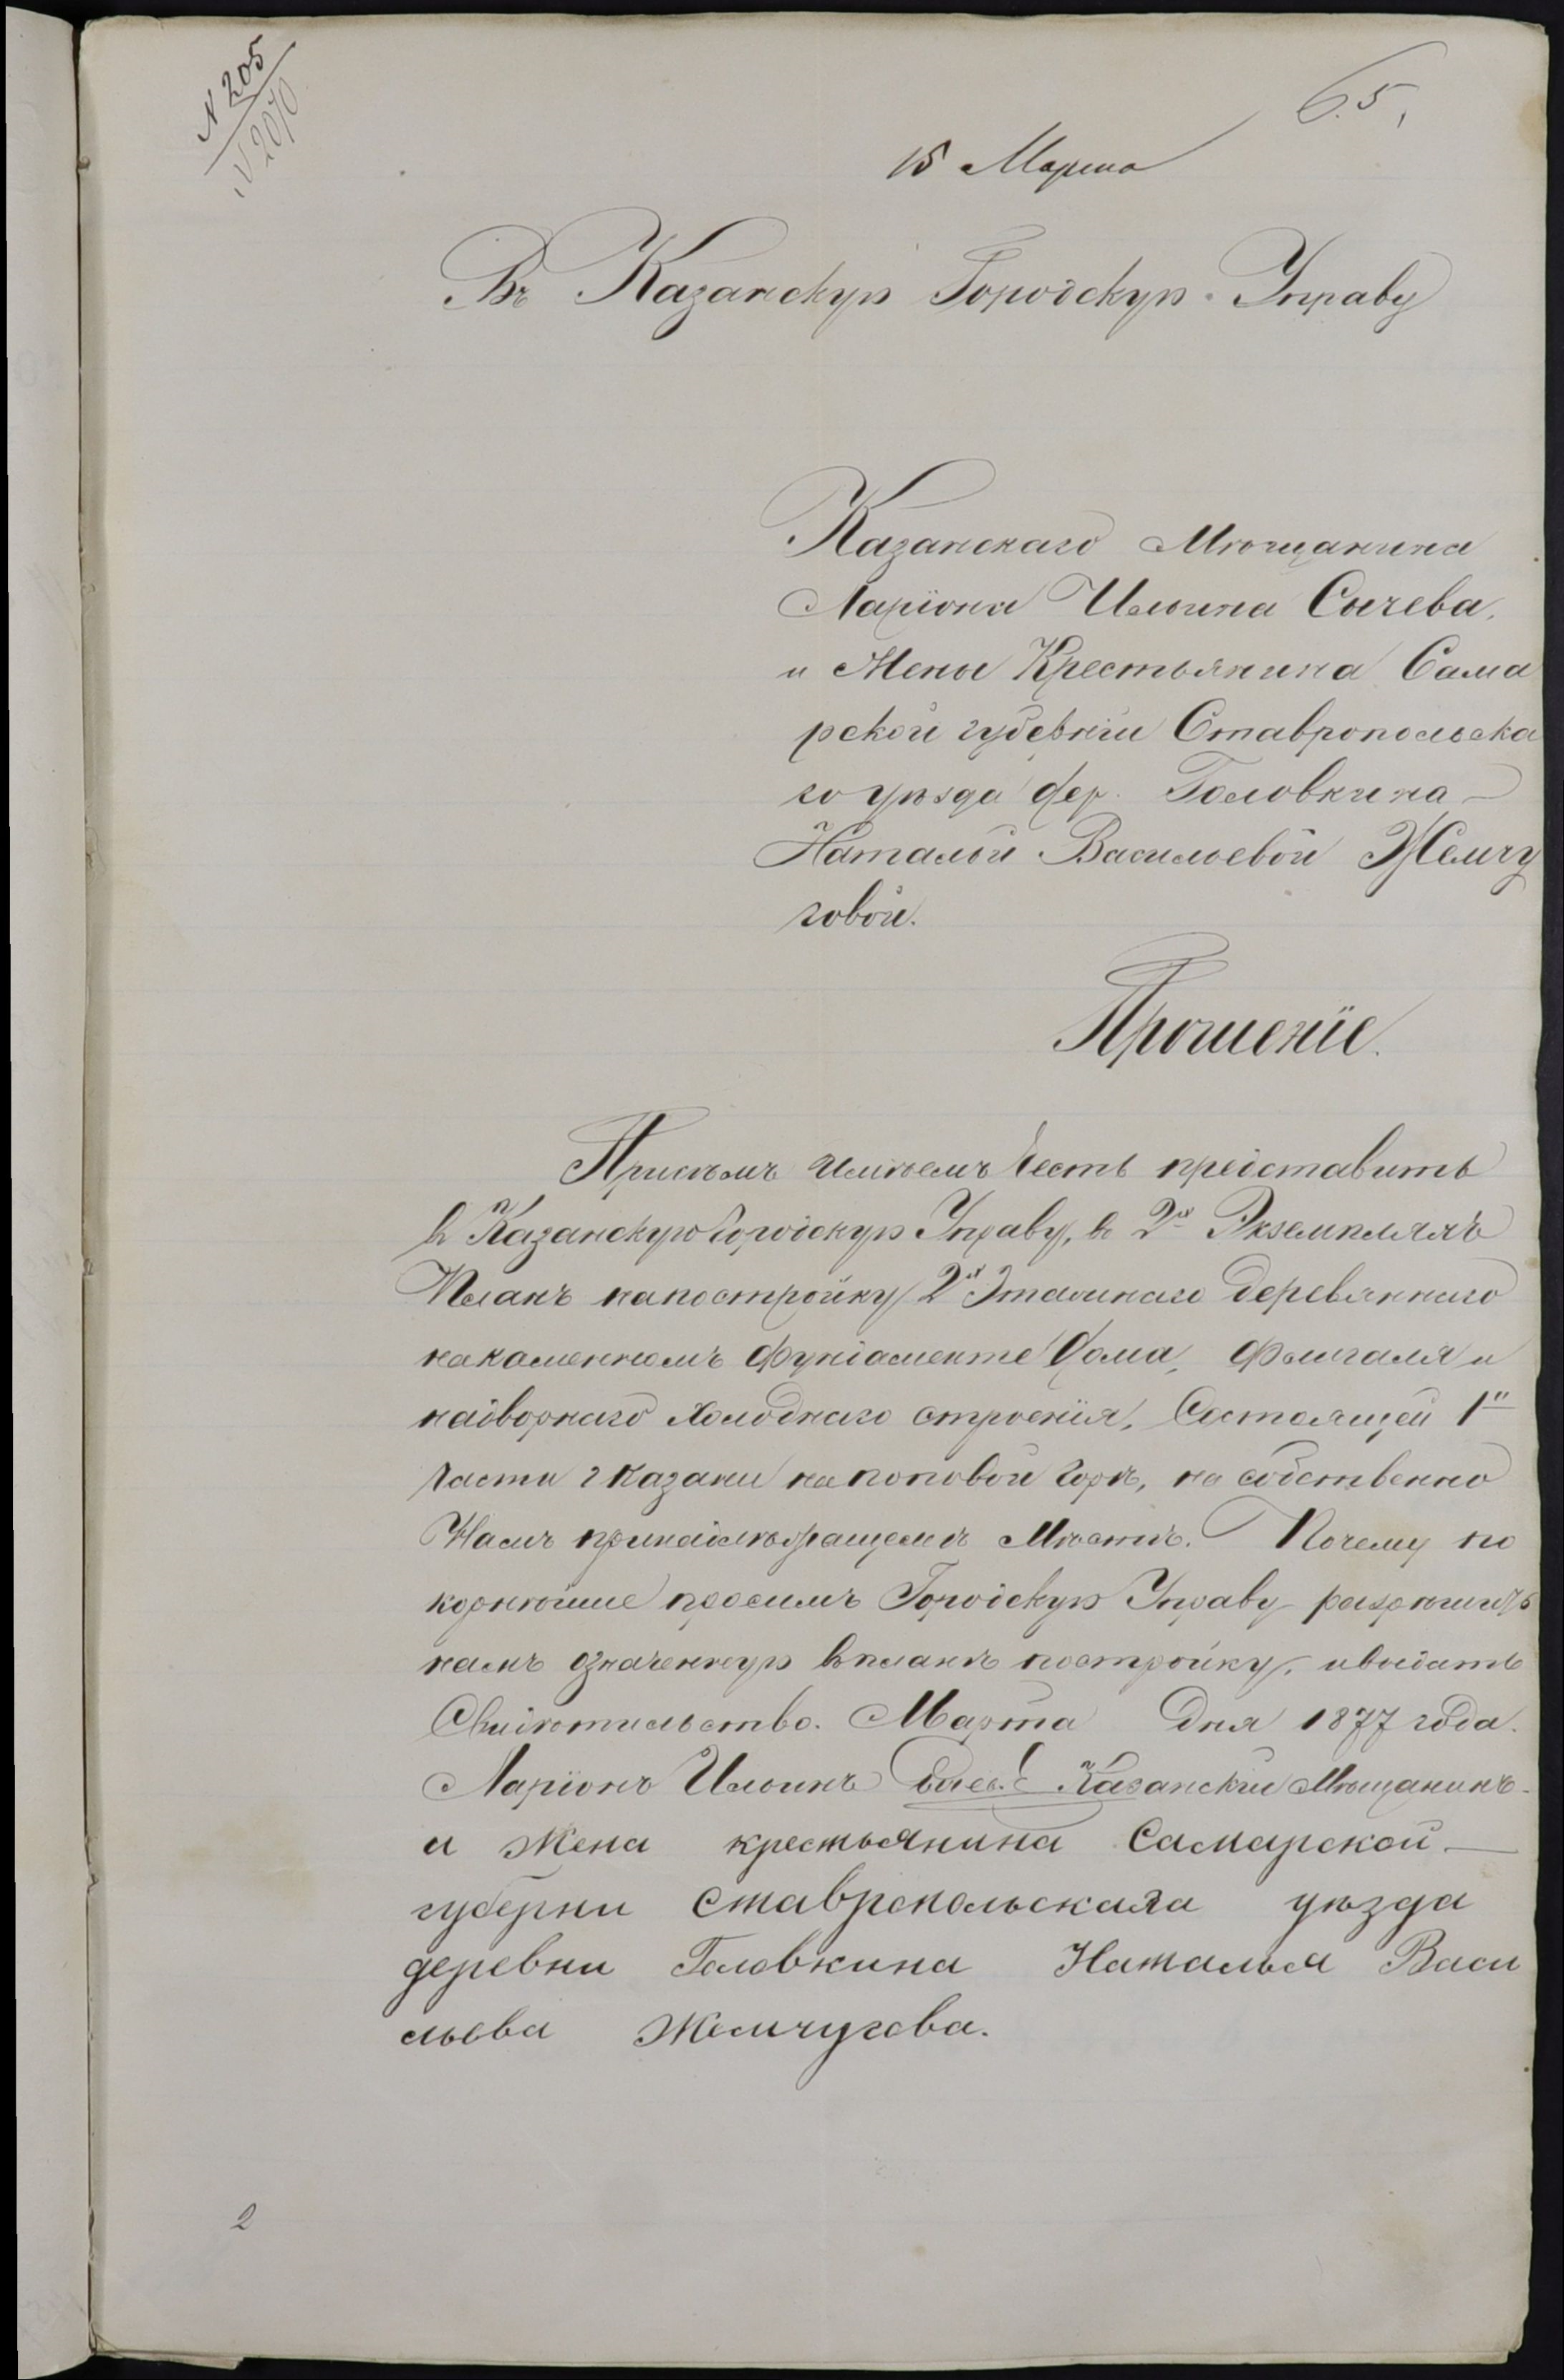 N 205
N 2070
65,
15 Марта
Въ Казанскую Городскую Управу
Казанскаго Мѣщанина
Ларіона Ильина Сычева,
и Жены Крестьянина Сама
рской губерніи Ставропольска
го уѣзда дер. Головкина —
Натальи Васильевой Жемчу
говой.
Прошеніе.
При семъ имѣемъ честь представить
въ Казанскую Городскую Управу, въ 2х Экземплярахъ
Планъ на постройку 2х Этажнаго деревяннаго
на каменномъ фундаменте Дома, Флигаля и
надворнаго Холоднаго строенія, Состоящей 1й
части г Казани на поповой горѣ, на собственно
Намъ принадлежащемъ Мѣстѣ. Почему по
корнѣйше просимъ Городскую Управу разрѣшить
намъ означенную въ планѣ постройку, и выдать
Свидѣтельство. Марта Дня 1877 года.
Ларіонъ Ильинъ Казанскій Мѣщанинъ
и жена крестьянина Самарской —
губерни Ставропольскага уѣзда
деревни Головкина Наталья Васи
льева Жемчугова.
2